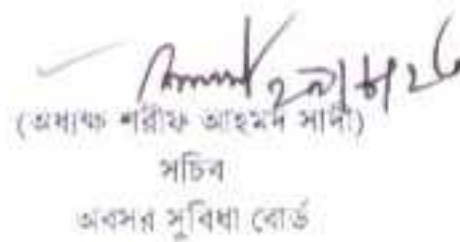 (অধ্যক্ষ শরীফ আহমদ সাদী)
সচিব
অবসর সুবিধা বোর্ড